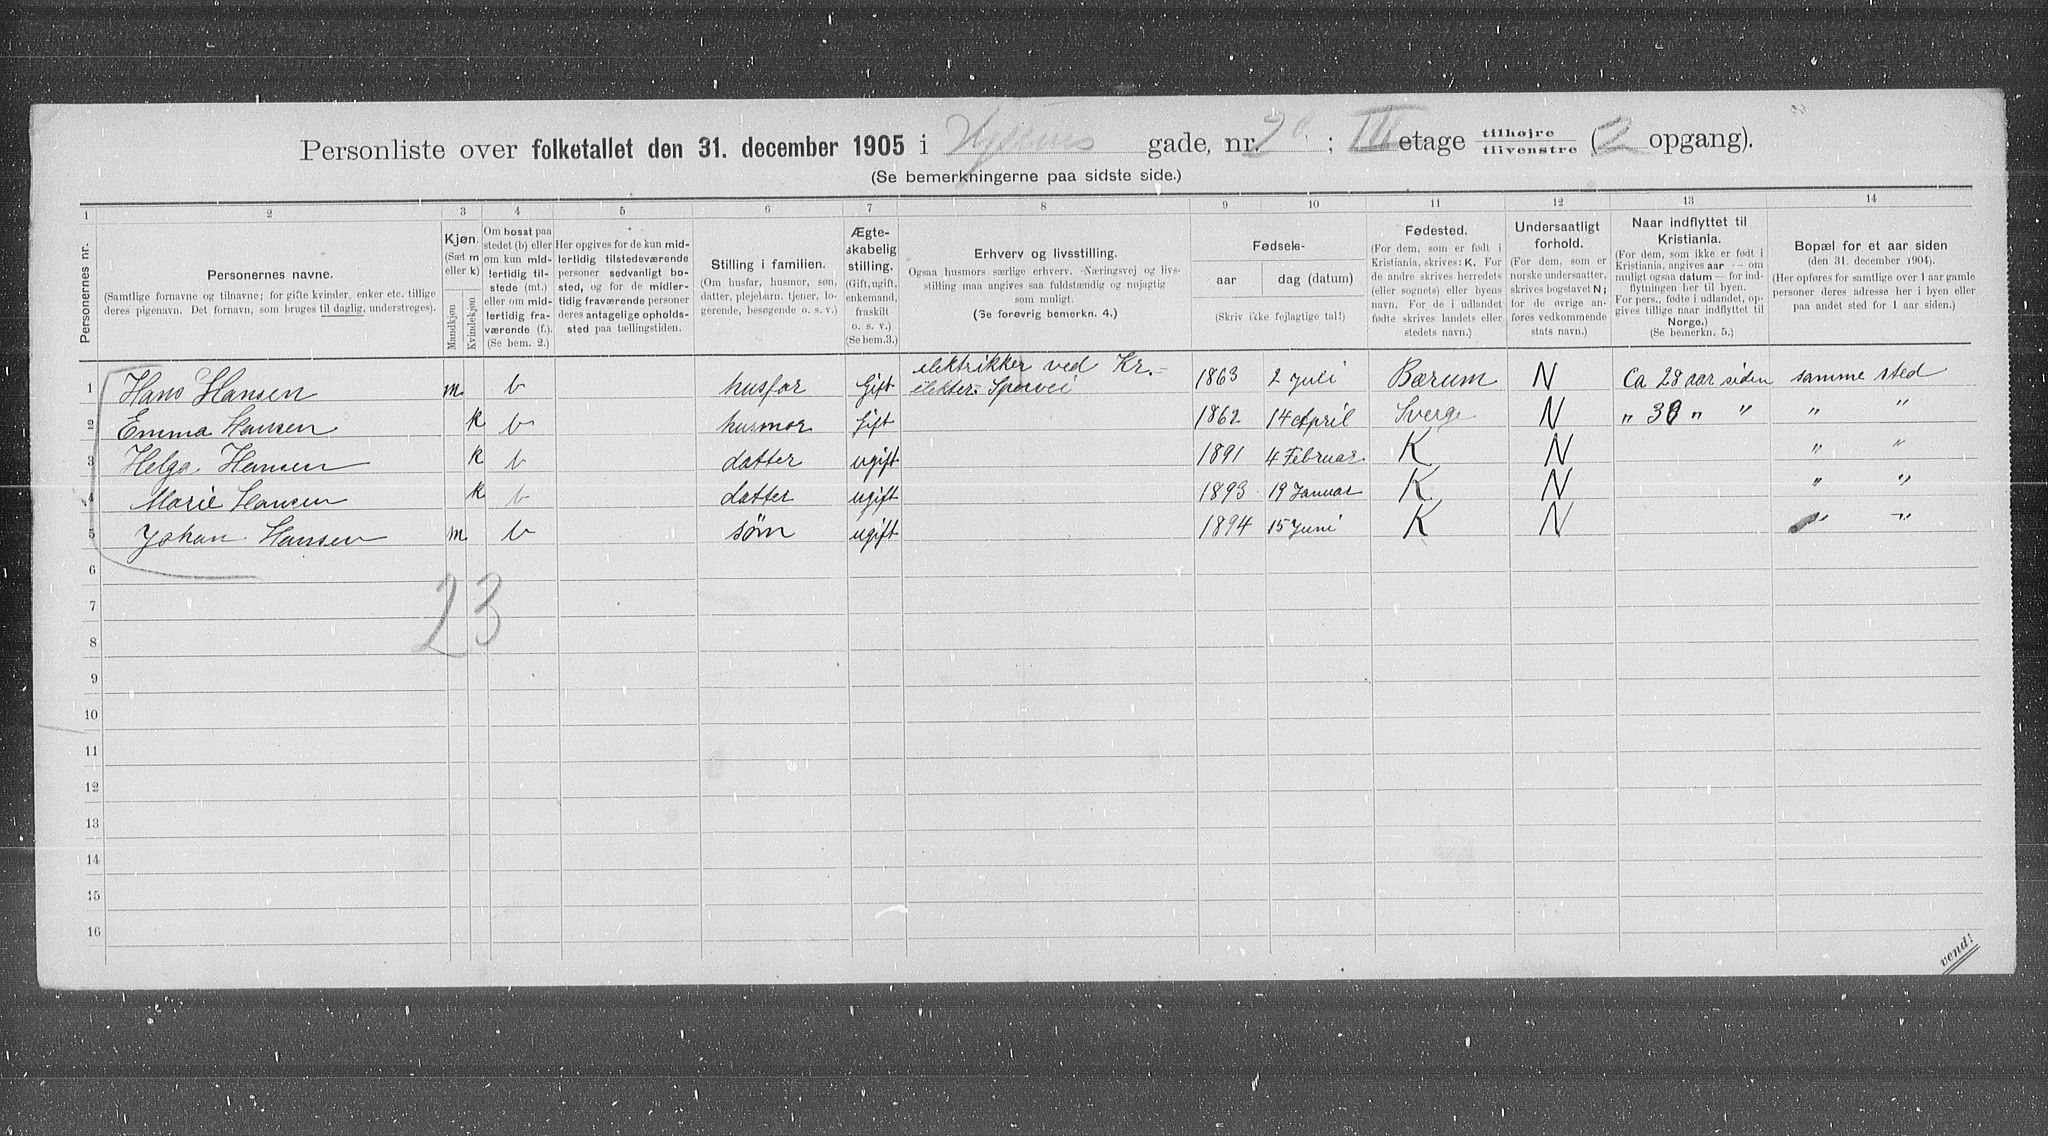 Personliste over folketallet den 31. december 1905 i gade, nr. ; III etage tilhøjre / tilvenstre (2 opgang).
(Se bemerkningerne paa sidste side.)
1 2 3 4 5 6 7 8 9 10 11 12 13 14
Personernes nr.
Personernes navne.
(Samtlige fornavne og tilnavne; for gifte kvinder, enker etc. tillige
deres pigenavn. Det fornavn, som bruges til daglig, understreges).
Kjøn.
(Sæt m
eller k)
Mandkjøn
Kvindekjøn
Om bosat paa
stedet (b) eller
om kun mid-
lertidig til-
stede (mt.)
eller om mid-
lertidig fra-
værende (f.).
(Se bem. 2.)
Her opgives for de kun mid-
lertidig tilstedeværende
personer sedvanligt bo-
sted, og for de midler-
tidig fraværende personer
deres antagelige opholds-
sted paa tællingstiden.
Stilling i familien.
(Om husfar, husmor, søn,
datter, plejebarn, tjener, lo-
gerende, besøgende o. s. v.)
Ægte-
skabelig
stilling.
(Gift, ugift,
enkemand,
fraskilt
o. s. v.)
(Se bem.3.)
Erhverv og livsstilling.
Ogsaa husmors særlige erhverv. Næringsvej og livs-
stilling maa angives saa fuldstændig og nøjagtig
som muligt.
(Se forøvrig bemerkn. 4.)
Fødsels-
aar
dag (datum)
(Skriv ikke fejlagtige tal!)
Fødested.
(For dem, som er født i
Kristiania, skrives: K. For
de andre skrives herredets
(eller sognets) eller byens
navn. For de i udlandet
fødte skrives landets eller
stedets navn.)
Undersaatligt
forhold.
(For dem, som er
norske undersaatter,
skrives bogstavet N;
for de øvrige an-
føres vedkommende
stats navn.)
Naar indflyttet til
Kristiania.
(For dem, som ikke er født i
Kristiania, angives aar — om
muligt ogsaa datum — for ind-
flytningen her til byen.
For pers., fødte i udlandet, op-
gives tillige naar indflyttet til
Norge.)
(Se bemerkn. 5.)
Bopæl for et aar siden
(den 31. december 1904).
(Her opføres for samtlige over 1 aar gamle
personer deres adresse her i byen eller
paa andet sted for 1 aar siden.)
1 Hans Hansen m b husfar Gift elektrikker ved Kr.- elekter. Sporvei 1863 2 Juli Bærum N Ca 28 aar siden samme sted
2 Emma Hansen k b husmor Gift 1862 14 April Sverge N " 30 " " " "
3 Helga Hansen k b datter ugift 1891 4 Februar K N " "
4 Marie Hansen k b datter ugift 1893 19 Januar K N " "
5 Johan Hansen m b søn ugift 1894 15 Juni K N " "
6
23
7
8
9
10
11
12
13
14
15
16
vend!